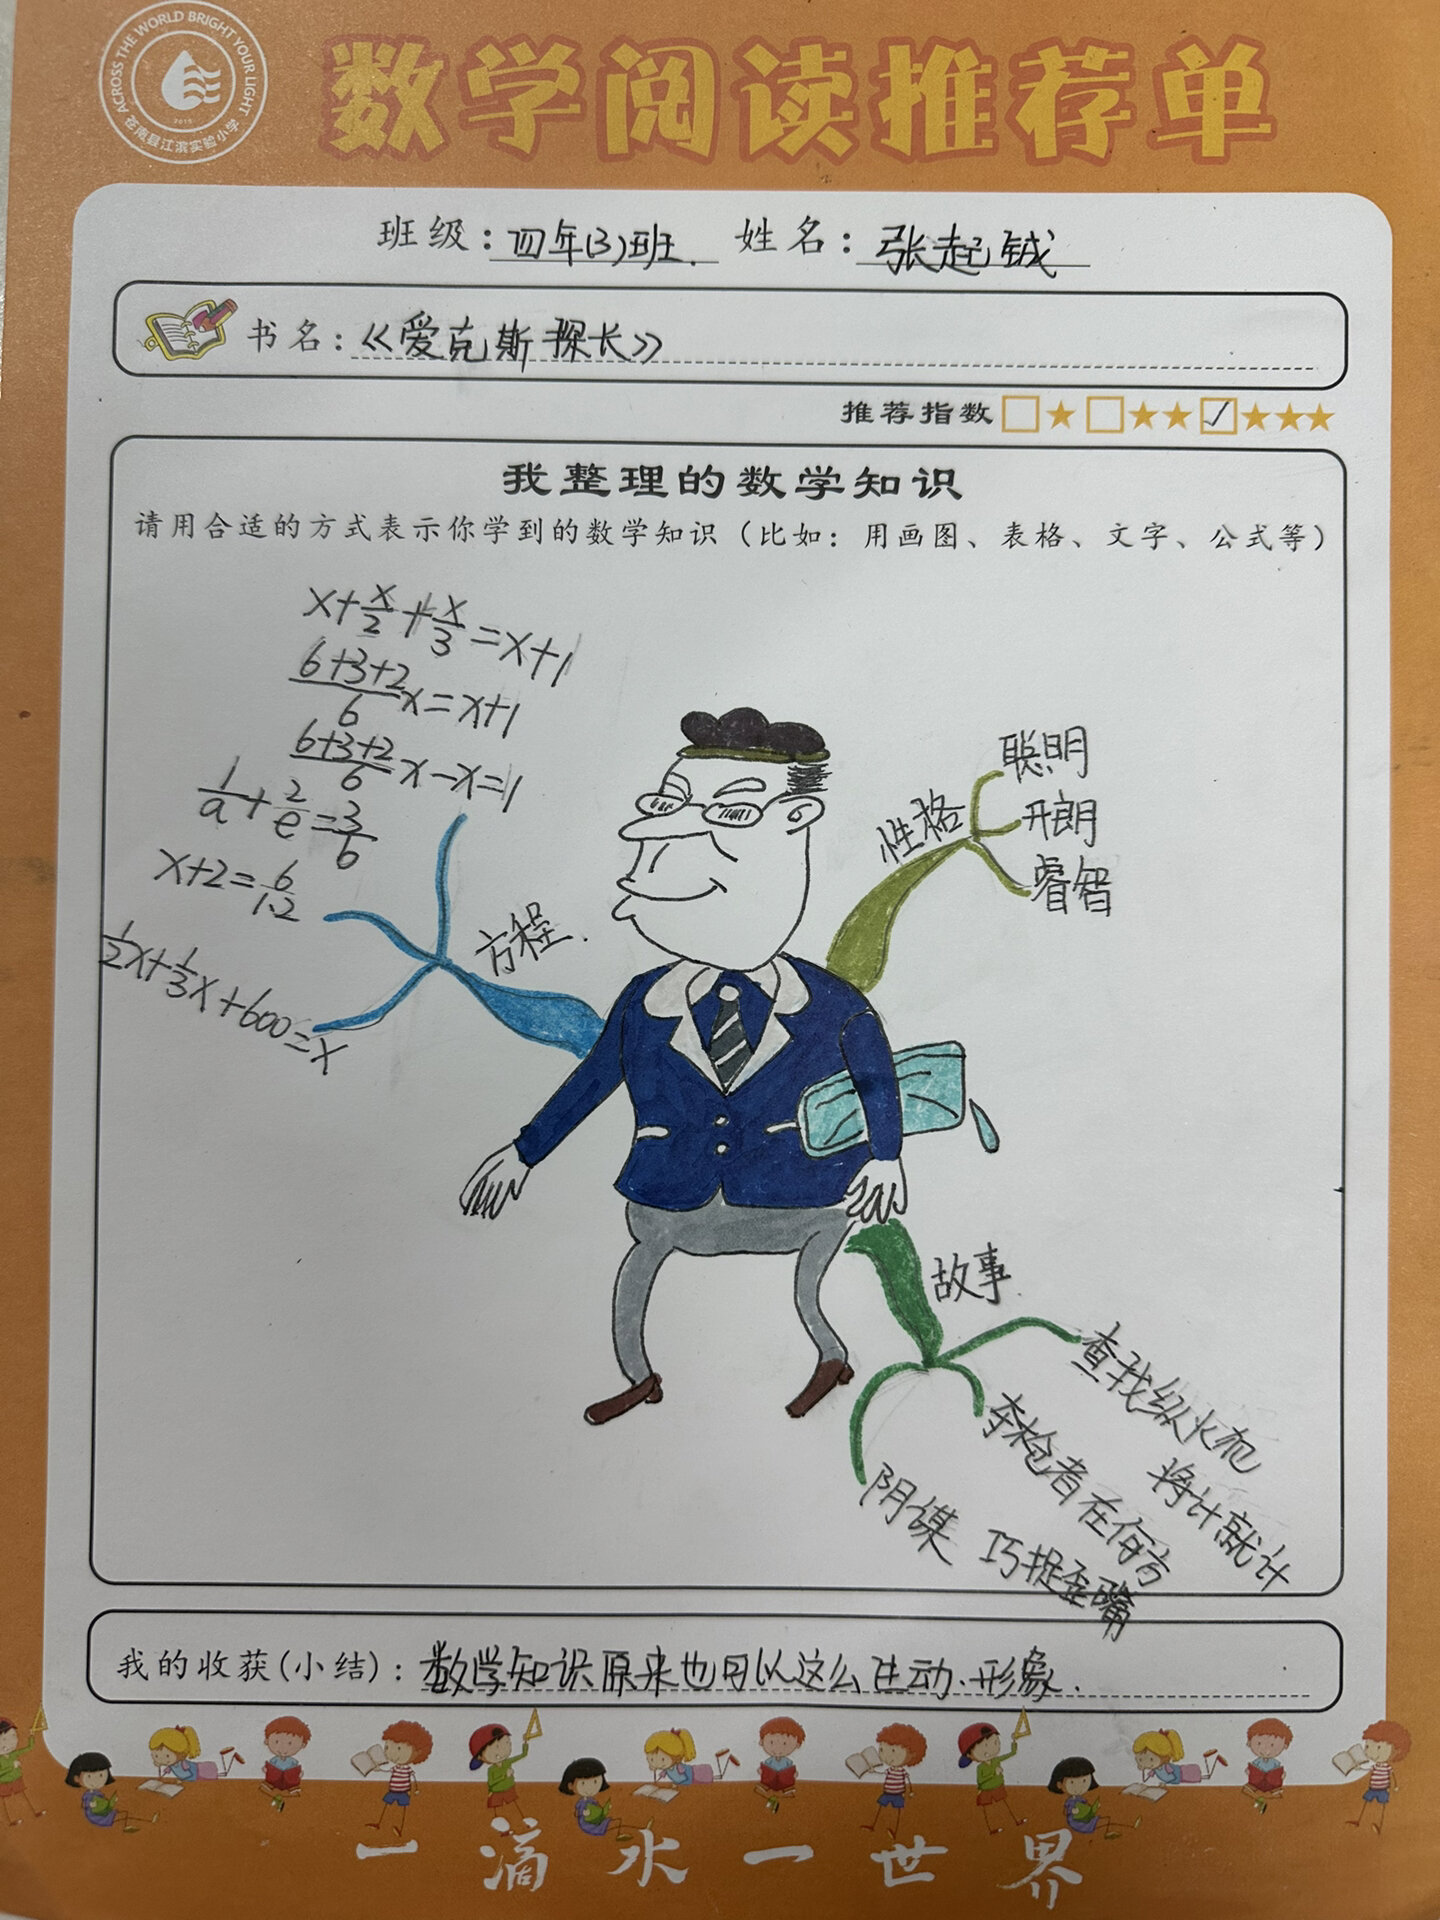 ACROSS THE WORLD BRIGHT YOUR LIGHT
2015
苍南县江滨实验小学
数学阅读推荐单
班级：四年(3)班. 姓名：张起铖
书名：《爱克斯探长》
推荐指数 □★ □★★ ☑★★★
我整理的数学知识
请用合适的方式表示你学到的数学知识（比如：用画图、表格、文字、公式等）
x+x/2+x/3=x+1
(6+3+2)/6 x=x+1
(6+3+2)/6 x-x=1
1/a+2/e=3/b
x+2=6/12
1/2x+1/3x+600=x
方程.
性格
聪明
开朗
睿智
故事.
查找纵火犯
将计就计
夺枪者在何方
巧捉歪嘴
阴谋
我的收获(小结)：数学知识原来也可以这么生动.形象.
一滴水一世界